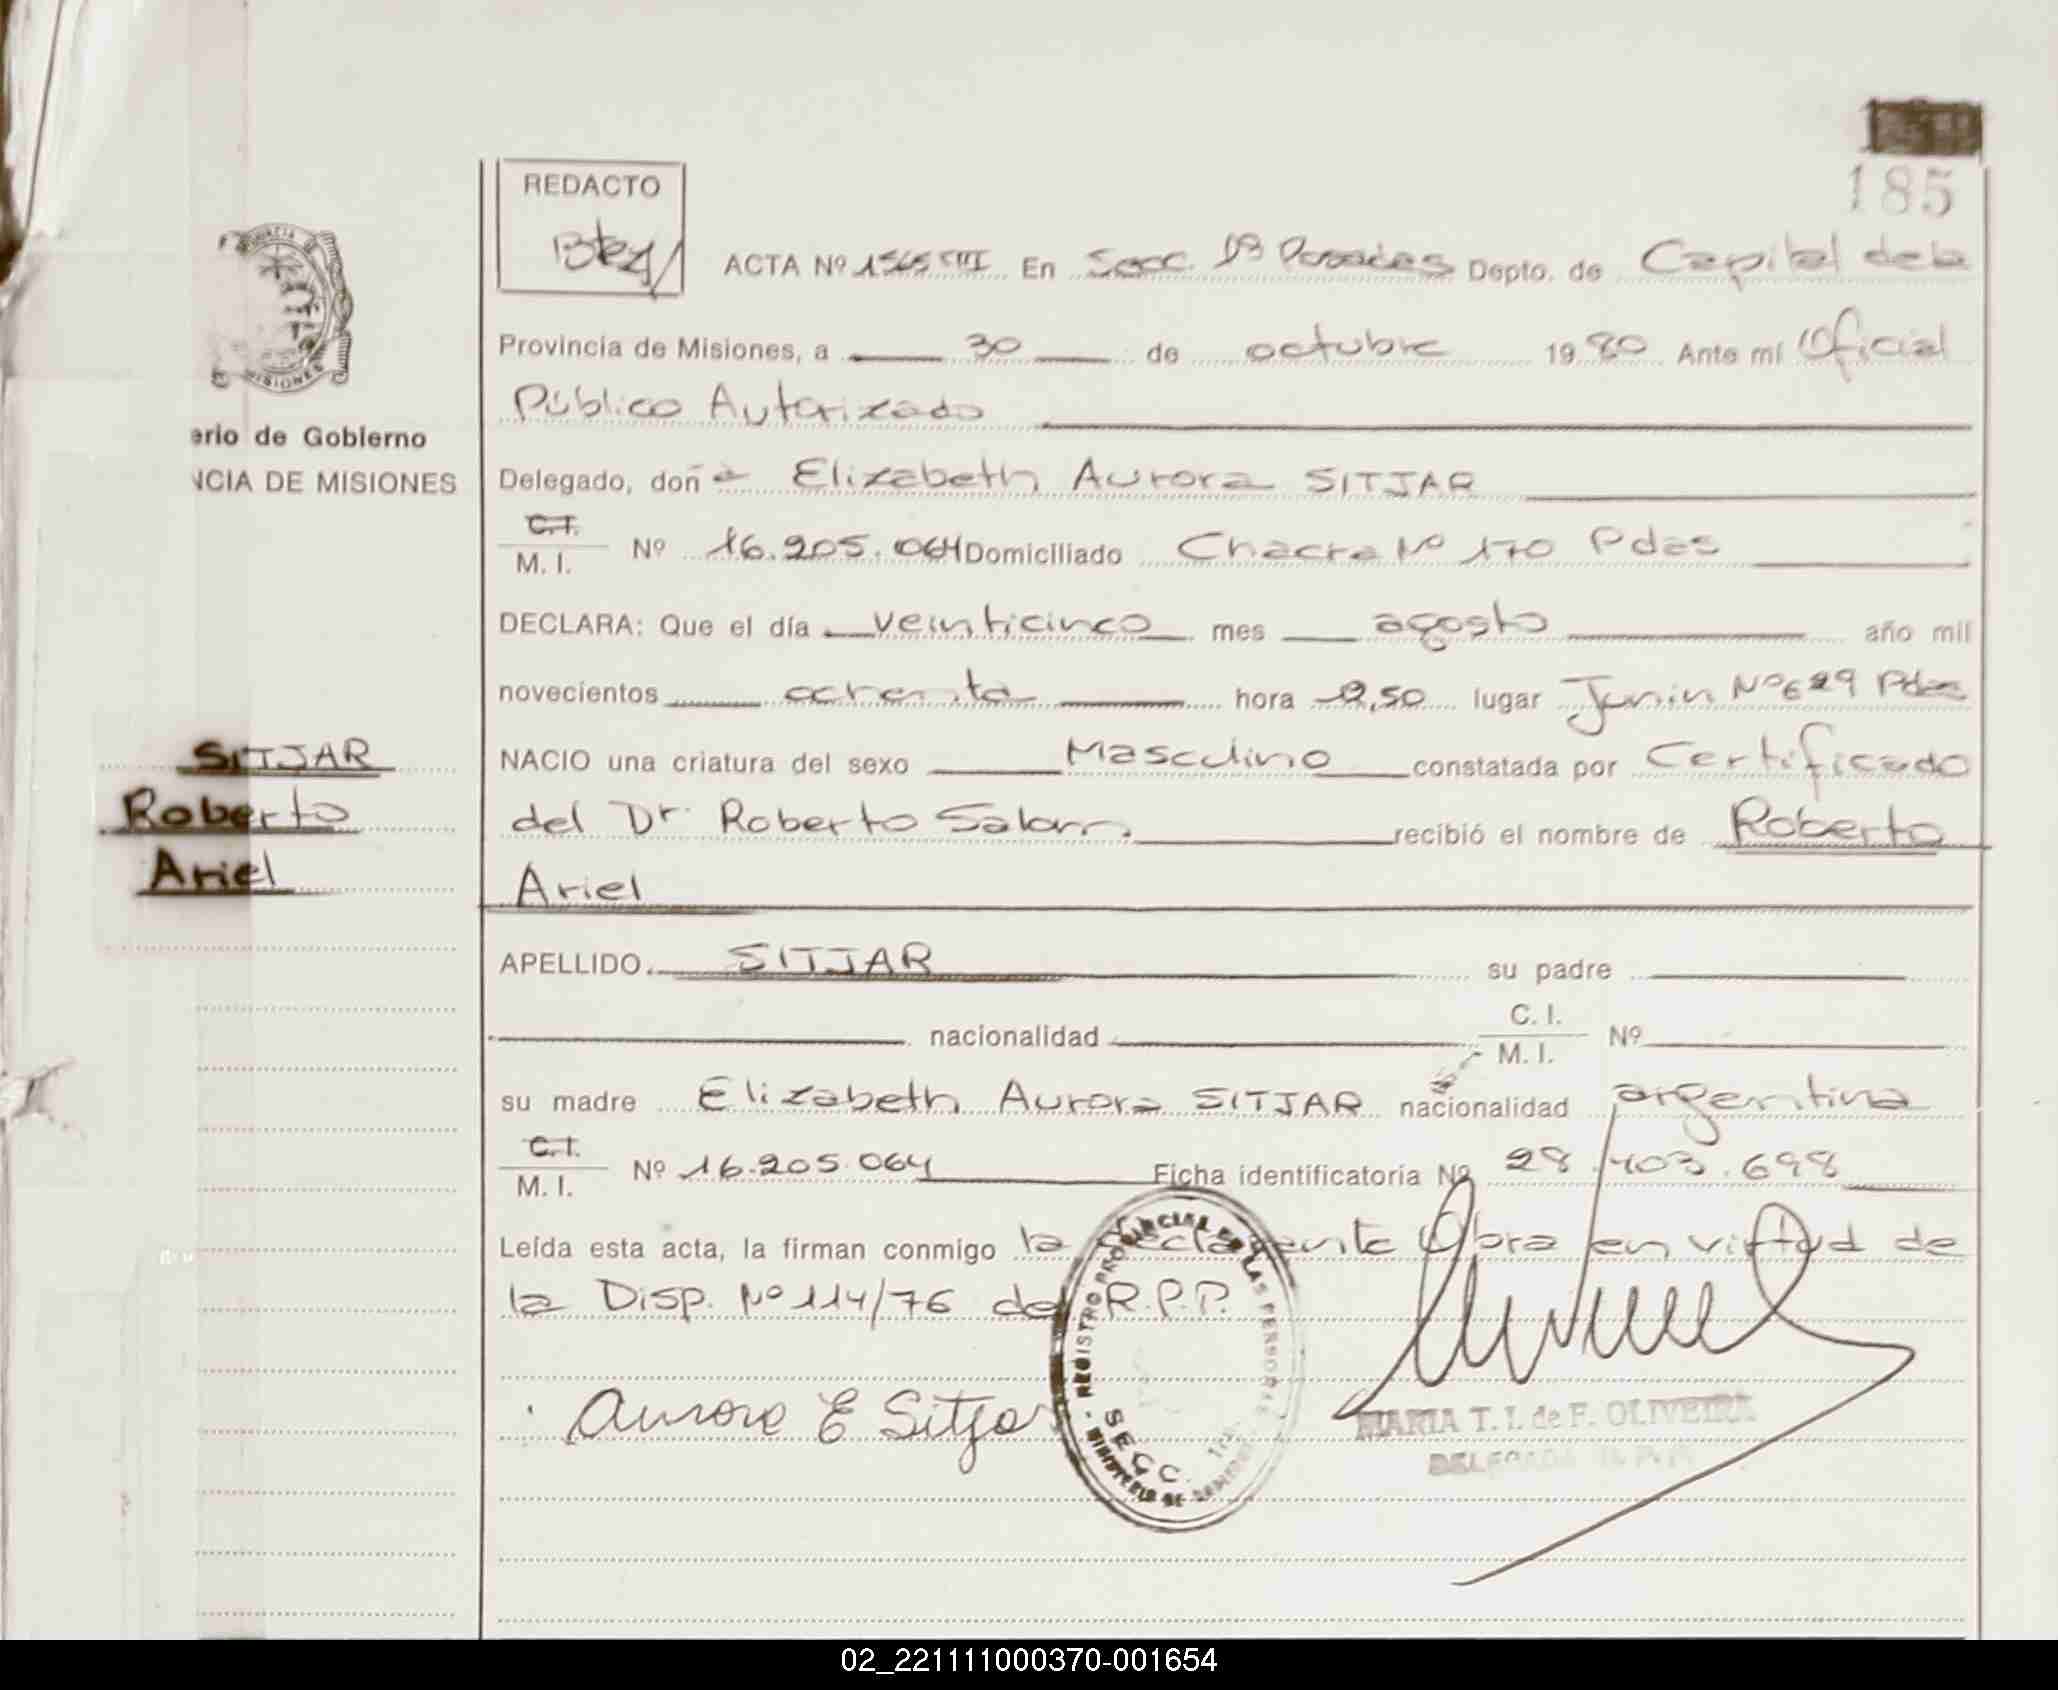 185
REDACTO
ACTA Nº 1565 VIII En Secc. 1ª Posadas Depto. de Capital de la
Provincia de Misiones, a 30 de octubre 1980 Ante mí Oficial
Público Autorizado
erio de Gobierno
NCIA DE MISIONES
Delegado, doña Elizabeth Aurora SITJAR
C.I.
M. I. Nº 16.205.064 Domiciliado Chacra Nº 170 Pdas
DECLARA: Que el día veinticinco mes agosto año mil
novecientos ochenta hora 2,50 lugar Junin Nº 629 Pdas
SITJAR
Roberto
Ariel
NACIO una criatura del sexo Masculino constatada por Certificado
del Dr. Roberto recibió el nombre de Roberto
Ariel
APELLIDO SITJAR su padre
nacionalidad C. I. M. I. Nº
su madre Elizabeth Aurora SITJAR nacionalidad argentina
C.I.
M. I. Nº 16.205.064 Ficha identificatoria Nº 28.403.698
Leída esta acta, la firman conmigo la declarante Obra en virtud de
la Disp. Nº 114/76 del R.P.P.
Aurora E Sitjar
REGISTRO PROVINCIAL DE LAS PERSONAS
SECC.
MARIA T. I. de F. OLIVEIRA
DELEGADA
02_221111000370-001654